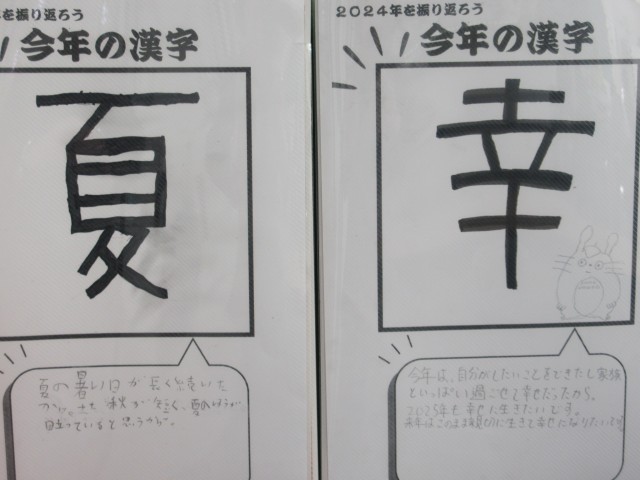 年を振り返ろう
今年の漢字
夏
夏の暑い日が長く続いて
秋が短く、夏のほうが
思うから。
2024年を振り返ろう
今年の漢字
幸
今年は、自分がしたいことをできたし家族
といっぱい過ごせて幸せだったから。
2025年も幸せに生きたいです。
来年はこのまま親切に生きて幸せになりたいです